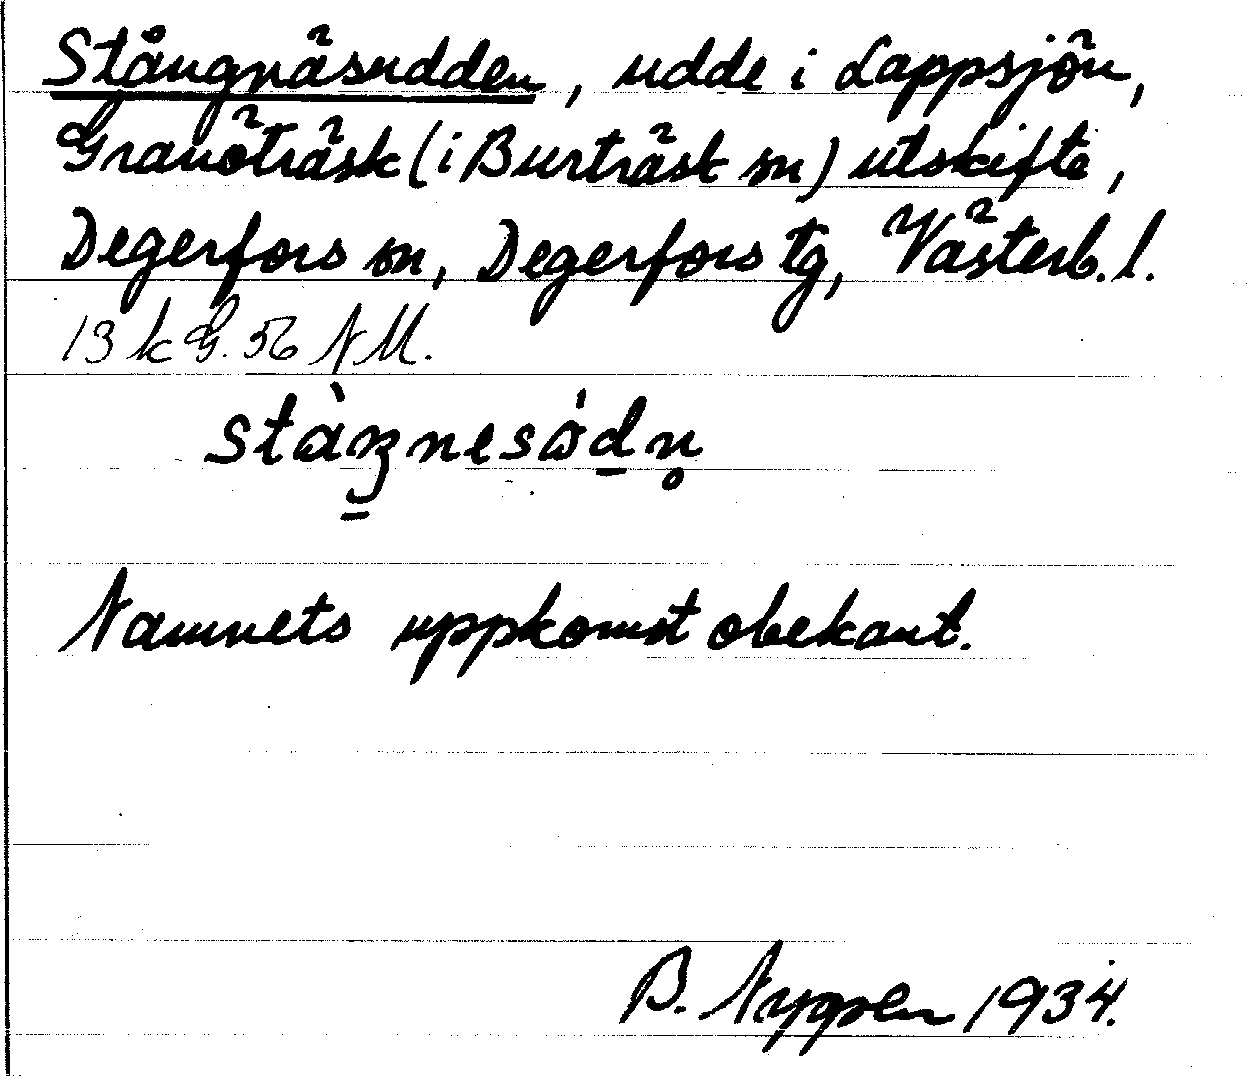 Stångnäsudden, udde i Lappsjön,
Granöträsk (i Burträsk sn) utskifte,
Degerfors sn, Degerfors tg, Västerb. l.
13 k G. 56 NM.
Namnets uppkomst obekant.
B. 1934.